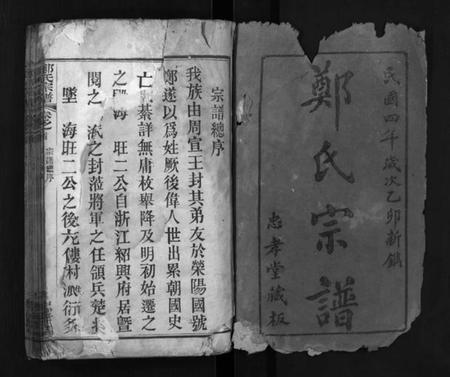 民國四年歲次乙卯新鐫
鄭氏宗譜
忠孝堂藏板
宗譜總序
我族由周宣王封其弟友於滎陽國號
鄭遂以為姓厥後偉人世出累朝國史
亡 綦詳無庸枚舉降及明初始遷之
之 海 旺二公自浙江紹興府居暨
閱之 之封蒞將軍之任領兵楚
墜 海旺二公之後尢僂村 衍
宗譜總序